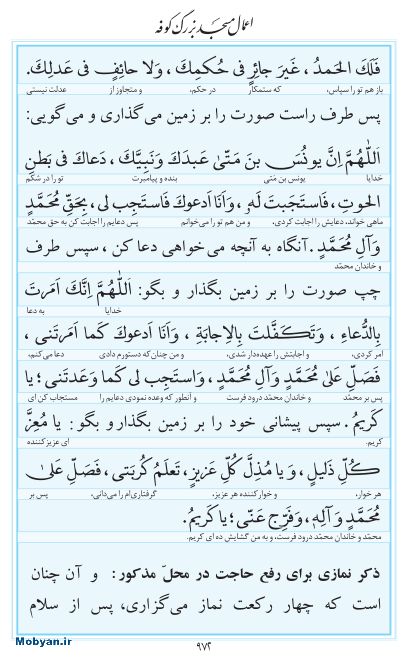 اعمال مسجد بزرگ کوفه
فَلَكَ الحَمدُ ، غَيرَ جائِرٍ فى حُكمِكَ ، وَلا حائِفٍ فى عَدلِكَ.
باز هم تو را سپاس، که ستمکار در حکم، و متجاوز از عدلت نیستی
پس طرف راست صورت را بر زمین می‌گذاری و می‌گویی:
اَللّٰهُمَّ اِنَّ يونُسَ بنَ مَتّىٰ عَبدَكَ وَنَبِيَّكَ ، دَعاكَ فى بَطنِ
خدایا یونس بن متی بنده و پیامبرت تو را در شکم
الحوتِ ، فَاستَجَبتَ لَهُ ، وَاَنَا اَدعوكَ فَاستَجِب لى ، بِحَقِّ مُحَمَّدٍ
ماهی خواند، دعایش را اجابت کردی، و من هم تو را می‌خوانم پس دعایم را اجابت کن به حق محمّد
وَآلِ مُحَمَّدٍ . آنگاه به آنچه می‌خواهی دعا کن ، سپس طرف
و خاندان محمّد
چپ صورت را بر زمین بگذار و بگو: اَللّٰهُمَّ اِنَّكَ اَمَرتَ
خدایا به دعا
بِالدُّعاءِ ، وَتَكَفَّلتَ بِالاِجابَةِ ، وَاَنَا اَدعوكَ كَما اَمَرتَنى ،
امر کردی، و اجابتش را عهده‌دار شدی، و من چنان‌که دستورم دادی دعا می‌کنم،
فَصَلِّ عَلىٰ مُحَمَّدٍ وَآلِ مُحَمَّدٍ ، وَاستَجِب لى كَما وَعَدتَنى ؛ يا
پس بر محمّد و خاندان محمّد درود فرست و آنطور که وعده نمودی دعایم را مستجاب کن ای
كَريمُ . سپس پیشانی خود را بر زمین بگذار و بگو: يا مُعِزَّ
کریم. ای عزیز کننده
كُلِّ ذَليلٍ ، وَيا مُذِلَّ كُلِّ عَزيزٍ ، تَعلَمُ كُربَتى ، فَصَلِّ عَلىٰ
هر خوار، و خوارکننده هر عزیز، گرفتاری‌ام را می‌دانی، پس بر
مُحَمَّدٍ وَآلِهِ ، وَفَرِّج عَنّى ؛ يا كَريمُ.
محمّد و خاندان محمّد درود فرست، و به من گشایش ده ای کریم.
ذکر نمازی برای رفع حاجت در محلّ مذکور: و آن چنان
است که چهار رکعت نماز می‌گزاری، پس از سلام
Mobyan.ir
۹۷۲